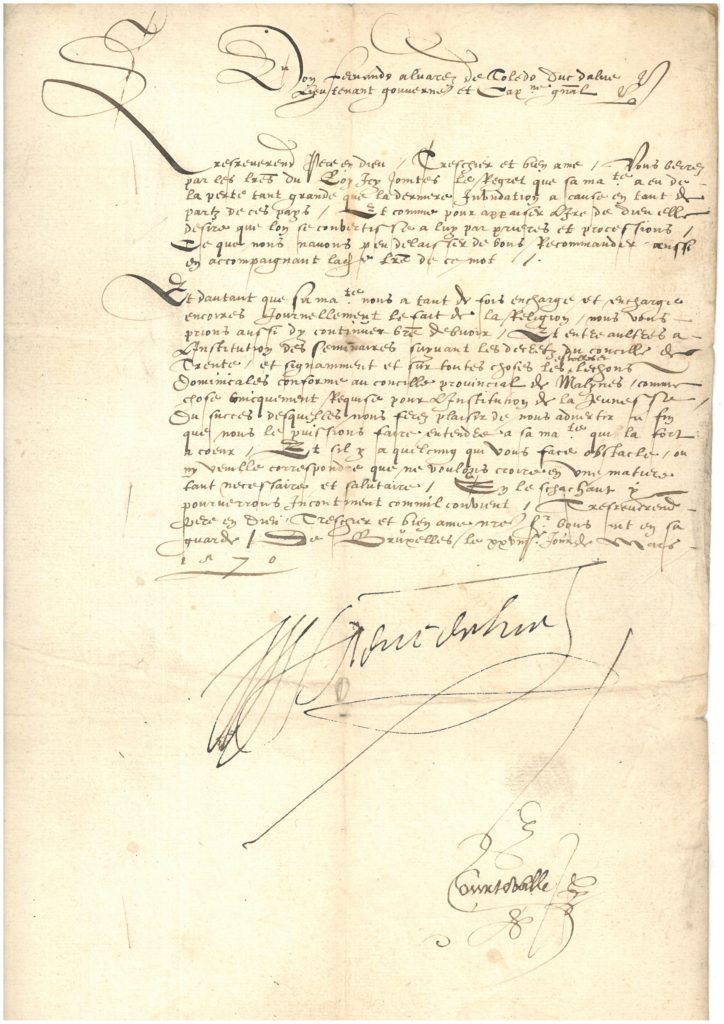 Don fernando alvarez de Toledo duc dalve
Lieutenant gouverneur et Cap.ne gnãal
Tresreverend Pere en dieu / Treschier et bien ame / Vous verrez
par les lr̃es du Roy Icy Jointes le Regret que sa ma.te a eu de
la perte tant grande que la derniere Inundation a cause en tant de
partz de ces pays / Et comme pour appaiser L'ire de dieu elle
desire que lon se convertisse a luy par prieres et processions /
Ce que nous navons peu delaisser de vous Recommander aussi
en accompaignant lad.e lr̃e de ce mot /.
Et dautant que sa ma.te nous a tant de fois encharge et encharge
encoires Journellement le fait de la Religion / nous vous
prions aussi dy continuer vr̃e debvoir / Et entre aultres a
L'institution des seminaires suyvant les decretz du concille de
Trente / et signamment et sur toutes choses les escolles
Dominicales conforme au concille provincial de Malynes / comme
chose unicquement Requise pour L'institution de la Jeunesse /
Du succes desquelles nous ferez plaisir de nous advertir a fin
que nous le puissions faire entendre a sa ma.te qui la fort
a coeur / Et sil y a quelcunq qui vous face obstacle / ou
ny veuille correspondre que ne voulons croire en une matiere
tant necessaire et salutaire / En le schachant y
pourverrons Incontinent comm'il convient / Tresreverend
Pere en dieu Treschier et bien ame nr̃e S.r vous ait en sa
guarde / De Bruxelles / le xxviii.e Jour de Mars
1570
Courtewille